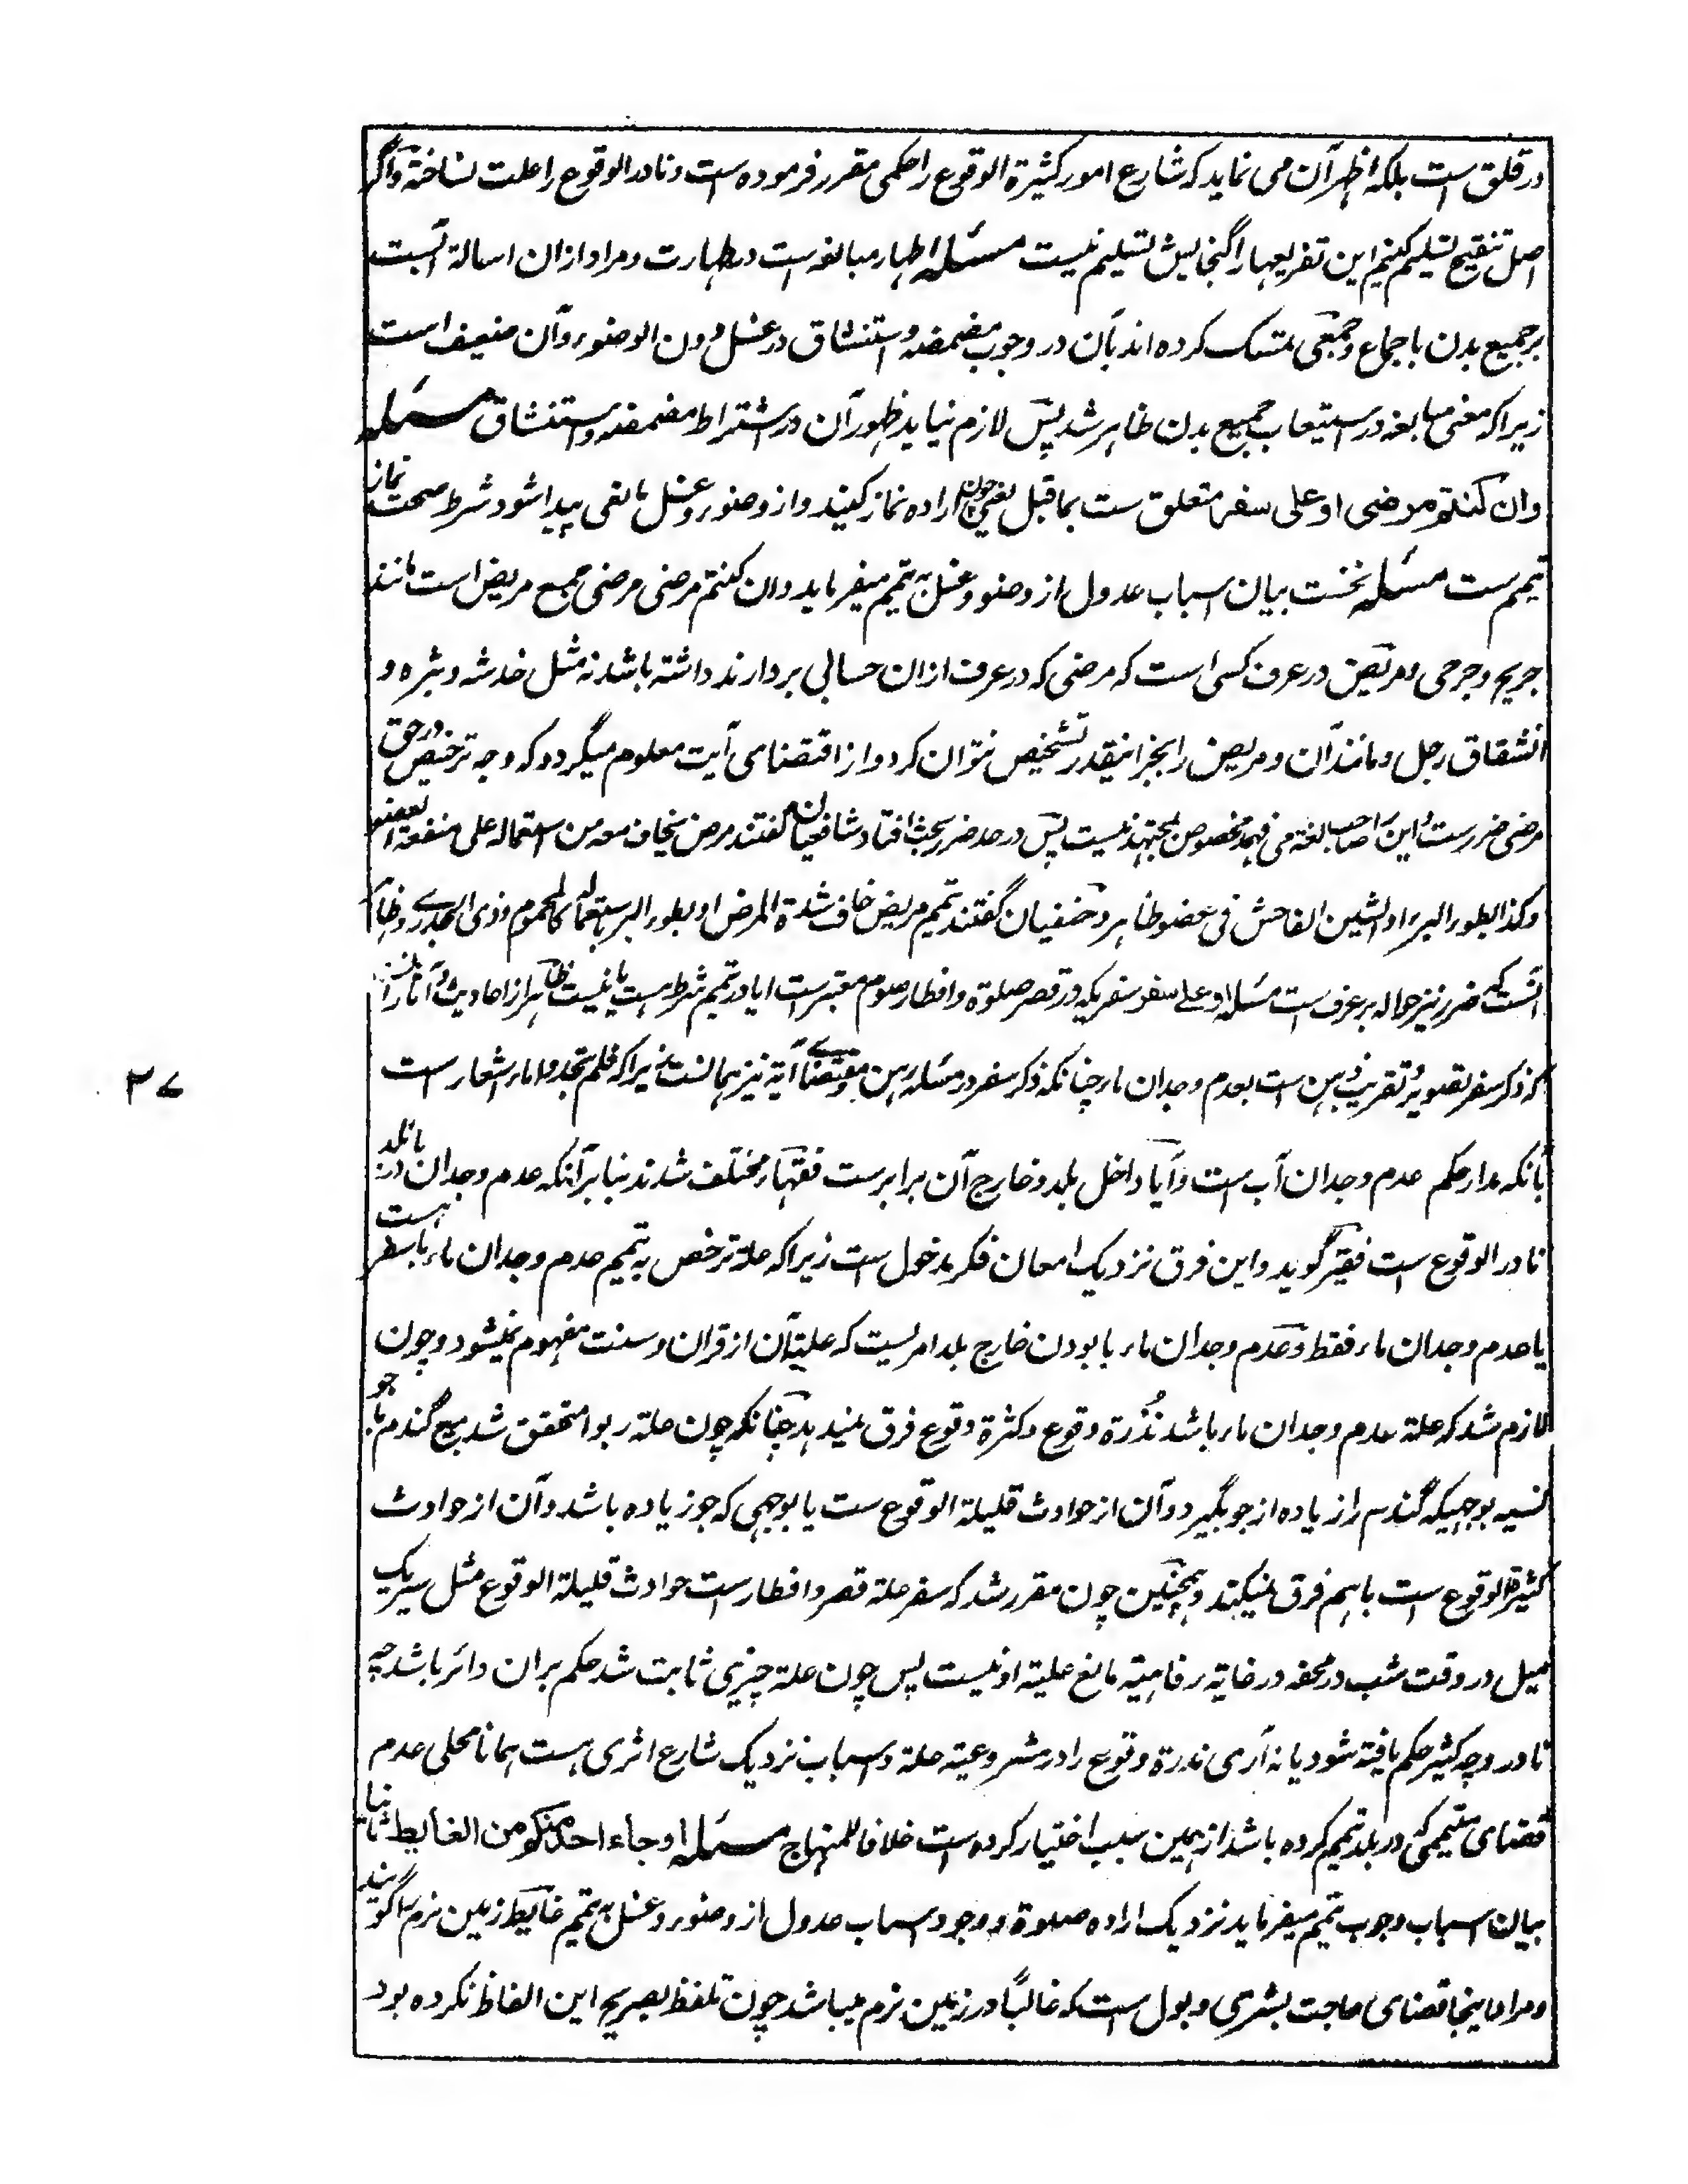 در قلق است بلکه اظهر آن می نماید که شارع امور کثیرة الوقوع را حکمی مقرر فرموده است و نادر الوقوع را علت نساخته و اگر
اصل تنقیح تسلیم کنیم این تفریعها را گنجایش تسلیم نیست مسئله اطهار مبالغه است در طهارت و مراد ازان اسالة آبست
بر جمیع بدن باجماع و جمعی متمسک کرده اند بآن در وجوب مضمضه و استنشاق در غسل دون الوضوء و آن ضعیف است
زیراکه معنی مبالغه در استیعاب جمیع بدن ظاهر شد پس لازم نیاید ظهور آن در اشتراط مضمضه و استنشاق مسئله
وان کنتم مرضی او علی سفر متعلق ست بماقبل یعنی چون اراده نماز کنید و از وضوء و غسل مانعی پیدا شود شرط صحت نماز
تیمم ست مسئله نخست بیان اسباب عدول از وضو و غسل به تیمم میفرماید وان کنتم مرضی مرضی جمع مریض است مانند
جریح و جرحی و مریض در عرف کسی است که مرضی که در عرف ازان حسابی بردارند داشته باشد نه مثل خدشه و بثره و
انشقاق رجل و مانند آن و مریض را بجز اینقدر تشخیص نتوان کرد و از اقتضای آیت معلوم میگردد که وجه ترخیص در حق
مرضی ضررست و این را صاحب لغة می فهمد مخصوص بمجتهد نیست پس در حد ضرر بحث افتاد شافعیان گفتند مرض یخاف معه من استعماله علی منفعة العضو
وکذا بطوء البرء او الشین الفاحش فی عضو ظاهر و حنفیان گفتند تیمم مریض خاف شدة المرض او بطوء البرء باستعماله کالمحموم وذی الجدری و ظاهر
آنست که ضرر نیز حواله بر عرف ست مسئله او علی سفر سفریکه در قصر صلوة و افطار صوم معتبر است ایا در تیمم شرط هست یا نیست ظاهر از احادیث و آثار آنست
که ذکر سفر تصویر و تقریب ذهن ست بعدم وجدان ماء چنانکه ذکر سفر در مسئله رهن و مقتضای آیة نیز همانست زیراکه فلم تجدوا ماء اشعار است
بانکه مدار حکم عدم وجدان آب ست و آیا داخل بلد و خارج آن برابرست فقهاء مختلف شدند بنا بر آنکه عدم وجدان در بلد
نادر الوقوع است فقیر گوید و این فرق نزدیک امعان فکر مدخول ست زیراکه علة ترخص به تیمم عدم وجدان ماء با سفر هست
یا عدم وجدان ماء فقط و عدم وجدان ماء با بودن خارج بلد امریست که علیة آن از قران و سنت مفهوم نمیشود و چون
لازم شد که علة عدم وجدان ماء باشد نُدْرة وقوع و کثرة وقوع فرق نمیدهد چنانکه چون علة ربوا متحقق شد بیع گندم با جو
نسیه بوجهیکه گندم را زیاده از جو بگیرد و آن از حوادث قلیلة الوقوع ست یا بوجهی که جو زیاده باشد و آن از حوادث
کثیرة الوقوع است باهم فرق نمیکند و همچنین چون مقرر شد که سفر علة قصر و افطار ست حوادث قلیلة الوقوع مثل سیر یک
میل در وقت شب در محفه در غایة رفاهیة مانع علیة او نیست پس چون علة چیزی ثابت شد حکم بران دائر باشد چه
نادر و چه کثیر حکم یافته شود یا نه آری ندرة وقوع را در مشروعیة علة و اسباب نزدیک شارع اثری هست همانا محلی عدم
قضای متیممی که در بلد تیمم کرده باشد از همین سبب اختیار کرده ست خلافا للمنهاج مسئله او جاء احد منکم من الغایط ثانیا
بیان اسباب وجوب تیمم میفرماید نزدیک اراده صلوة و وجود اسباب عدول از وضوء و غسل به تیمم غایط زمین نرم را گویند
و مراد اینجا قضای حاجت بشری و بول ست که غالبًا در زمین نرم میباشد چون تلفظ بصریح این الفاظ نکرده بود
۳۷